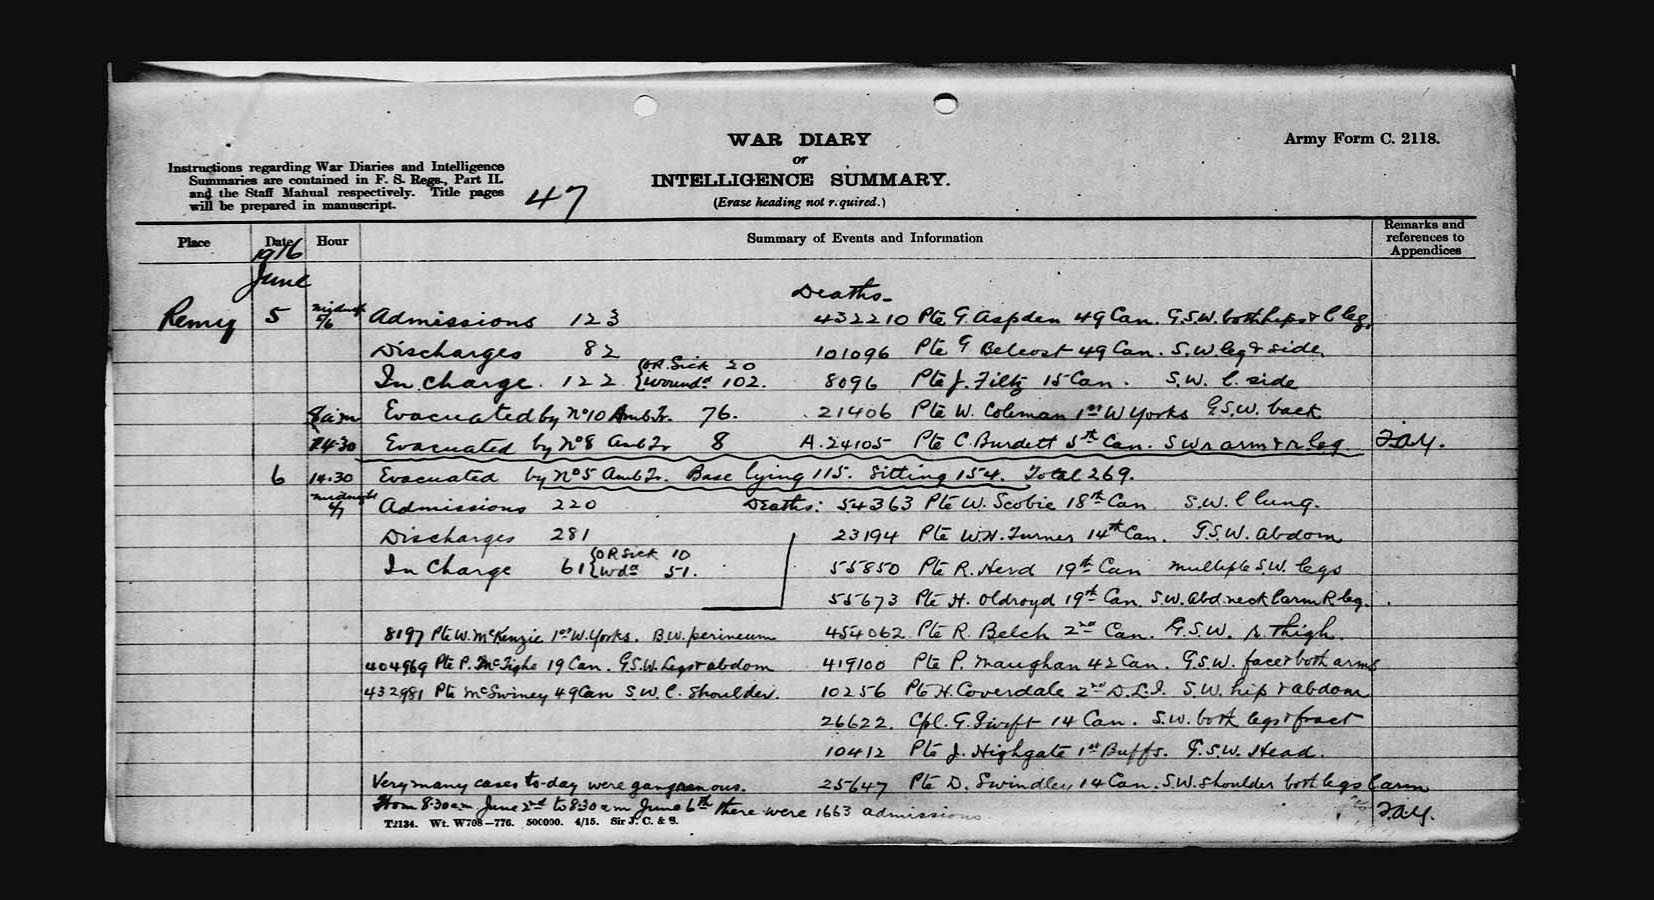 WAR DIARY
or
INTELLIGENCE SUMMARY.
(Erase heading not required.)
Army Form C. 2118.
Instructions regarding War Diaries and Intelligence
Summaries are contained in F. S. Regs., Part II.
and the Staff Manual respectively. Title pages
will be prepared in manuscript.
47
Place Date Hour Summary of Events and Information Remarks and references to Appendices
1916
June
Deaths
Remy 5 midnight 5/6 Admissions 123 432210 Pte G. Aspden 49 Can. G.S.W. both hips & l leg
Discharges 82 101096 Pte G Belcost 49 Can. S.W. leg & side.
In charge. 122 {O.R. Sick 20 Wounded 102. 8096 Pte J. Filtz 15 Can. S.W. l. side
8 am Evacuated by No 10 Amb Tr. 76. 21406 Pte W. Coleman 1st W Yorks G.S.W. back
14-30 Evacuated by No 8 Amb Tr 8 A.24105 Pte C. Burdett 5th Can. S W r arm & r. leg. F.A.Y.
6 14.30 Evacuated by No 5 Amb Tr. Base lying 115. Sitting 154. Total 269.
midnight 6/7 Admissions 220 Deaths: 54363 Pte W. Scobie 18th Can S.W. l lung.
Discharges 281 23194 Pte W.H. Turner 14th Can. G.S.W. abdom
In Charge 61 {O R Sick 10 Wdd 51. 55850 Pte R. Herd 19th Can multiple S.W. legs
55673 Pte H. Oldroyd 19th Can. S.W. Abd. neck l arm R leg.
8197 Pte W. McKenzie 1st W. Yorks. B.W. perineum 454062 Pte R. Belch 2nd Can. G.S.W. r. thigh.
404969 Pte P. McTighe 19 Can. G.S.W. legs & abdom 419100 Pte P. Maughan 42 Can. G.S.W. face & both arms
432981 Pte McSwiney 49 Can S.W. l. Shoulder. 10256 Pte H. Coverdale 2nd D.L.I. S.W. hip & abdom
26622. Cpl. G. Swift 14 Can. S.W. both legs & fract
10412 Pte J. Highgate 1st Buffs. G.S.W. Head.
Very many cases to-day were gangrenous. 25647 Pte D. Swindley 14 Can. S.W. shoulder both legs l arm
From 8.30 am June 2nd to 8.30 am June 6th there were 1663 admissions F.A.Y.
T2134. Wt. W708—776. 500000. 4/15. Sir J. C. & S.